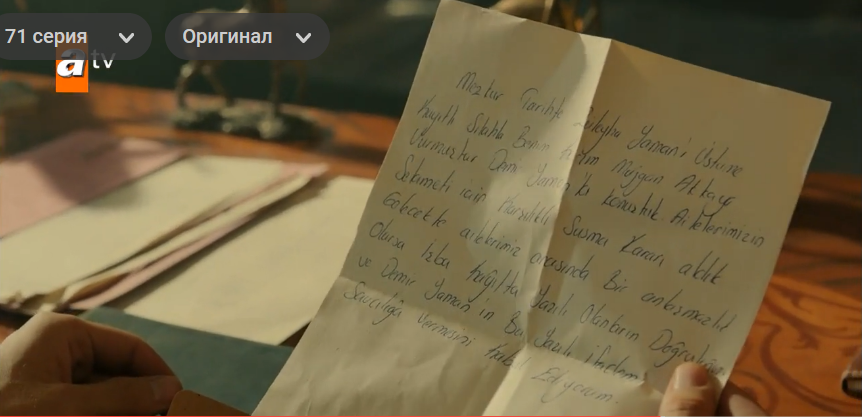 71 серия
Оригинал
a tv
Mezkur Tarihte Züleyha Yaman'ı Üstüne
Kayıtlı Silahla Benim Kızım Müjgan Akkaya
Vurmuştur Demir Yaman'la konuştuk. Ailelerimizin
Selameti için Karşılıklı Susma Kararı aldık
Gelecekte ailelerimiz arasında Bir anlaşmazlık
Olursa İşbu kağıtta Yazılı Olanların Doğruluğunu
ve Demir Yaman'ın Bu Yazılı ifademi
Savcılığa Vermesini kabul Ediyorum.